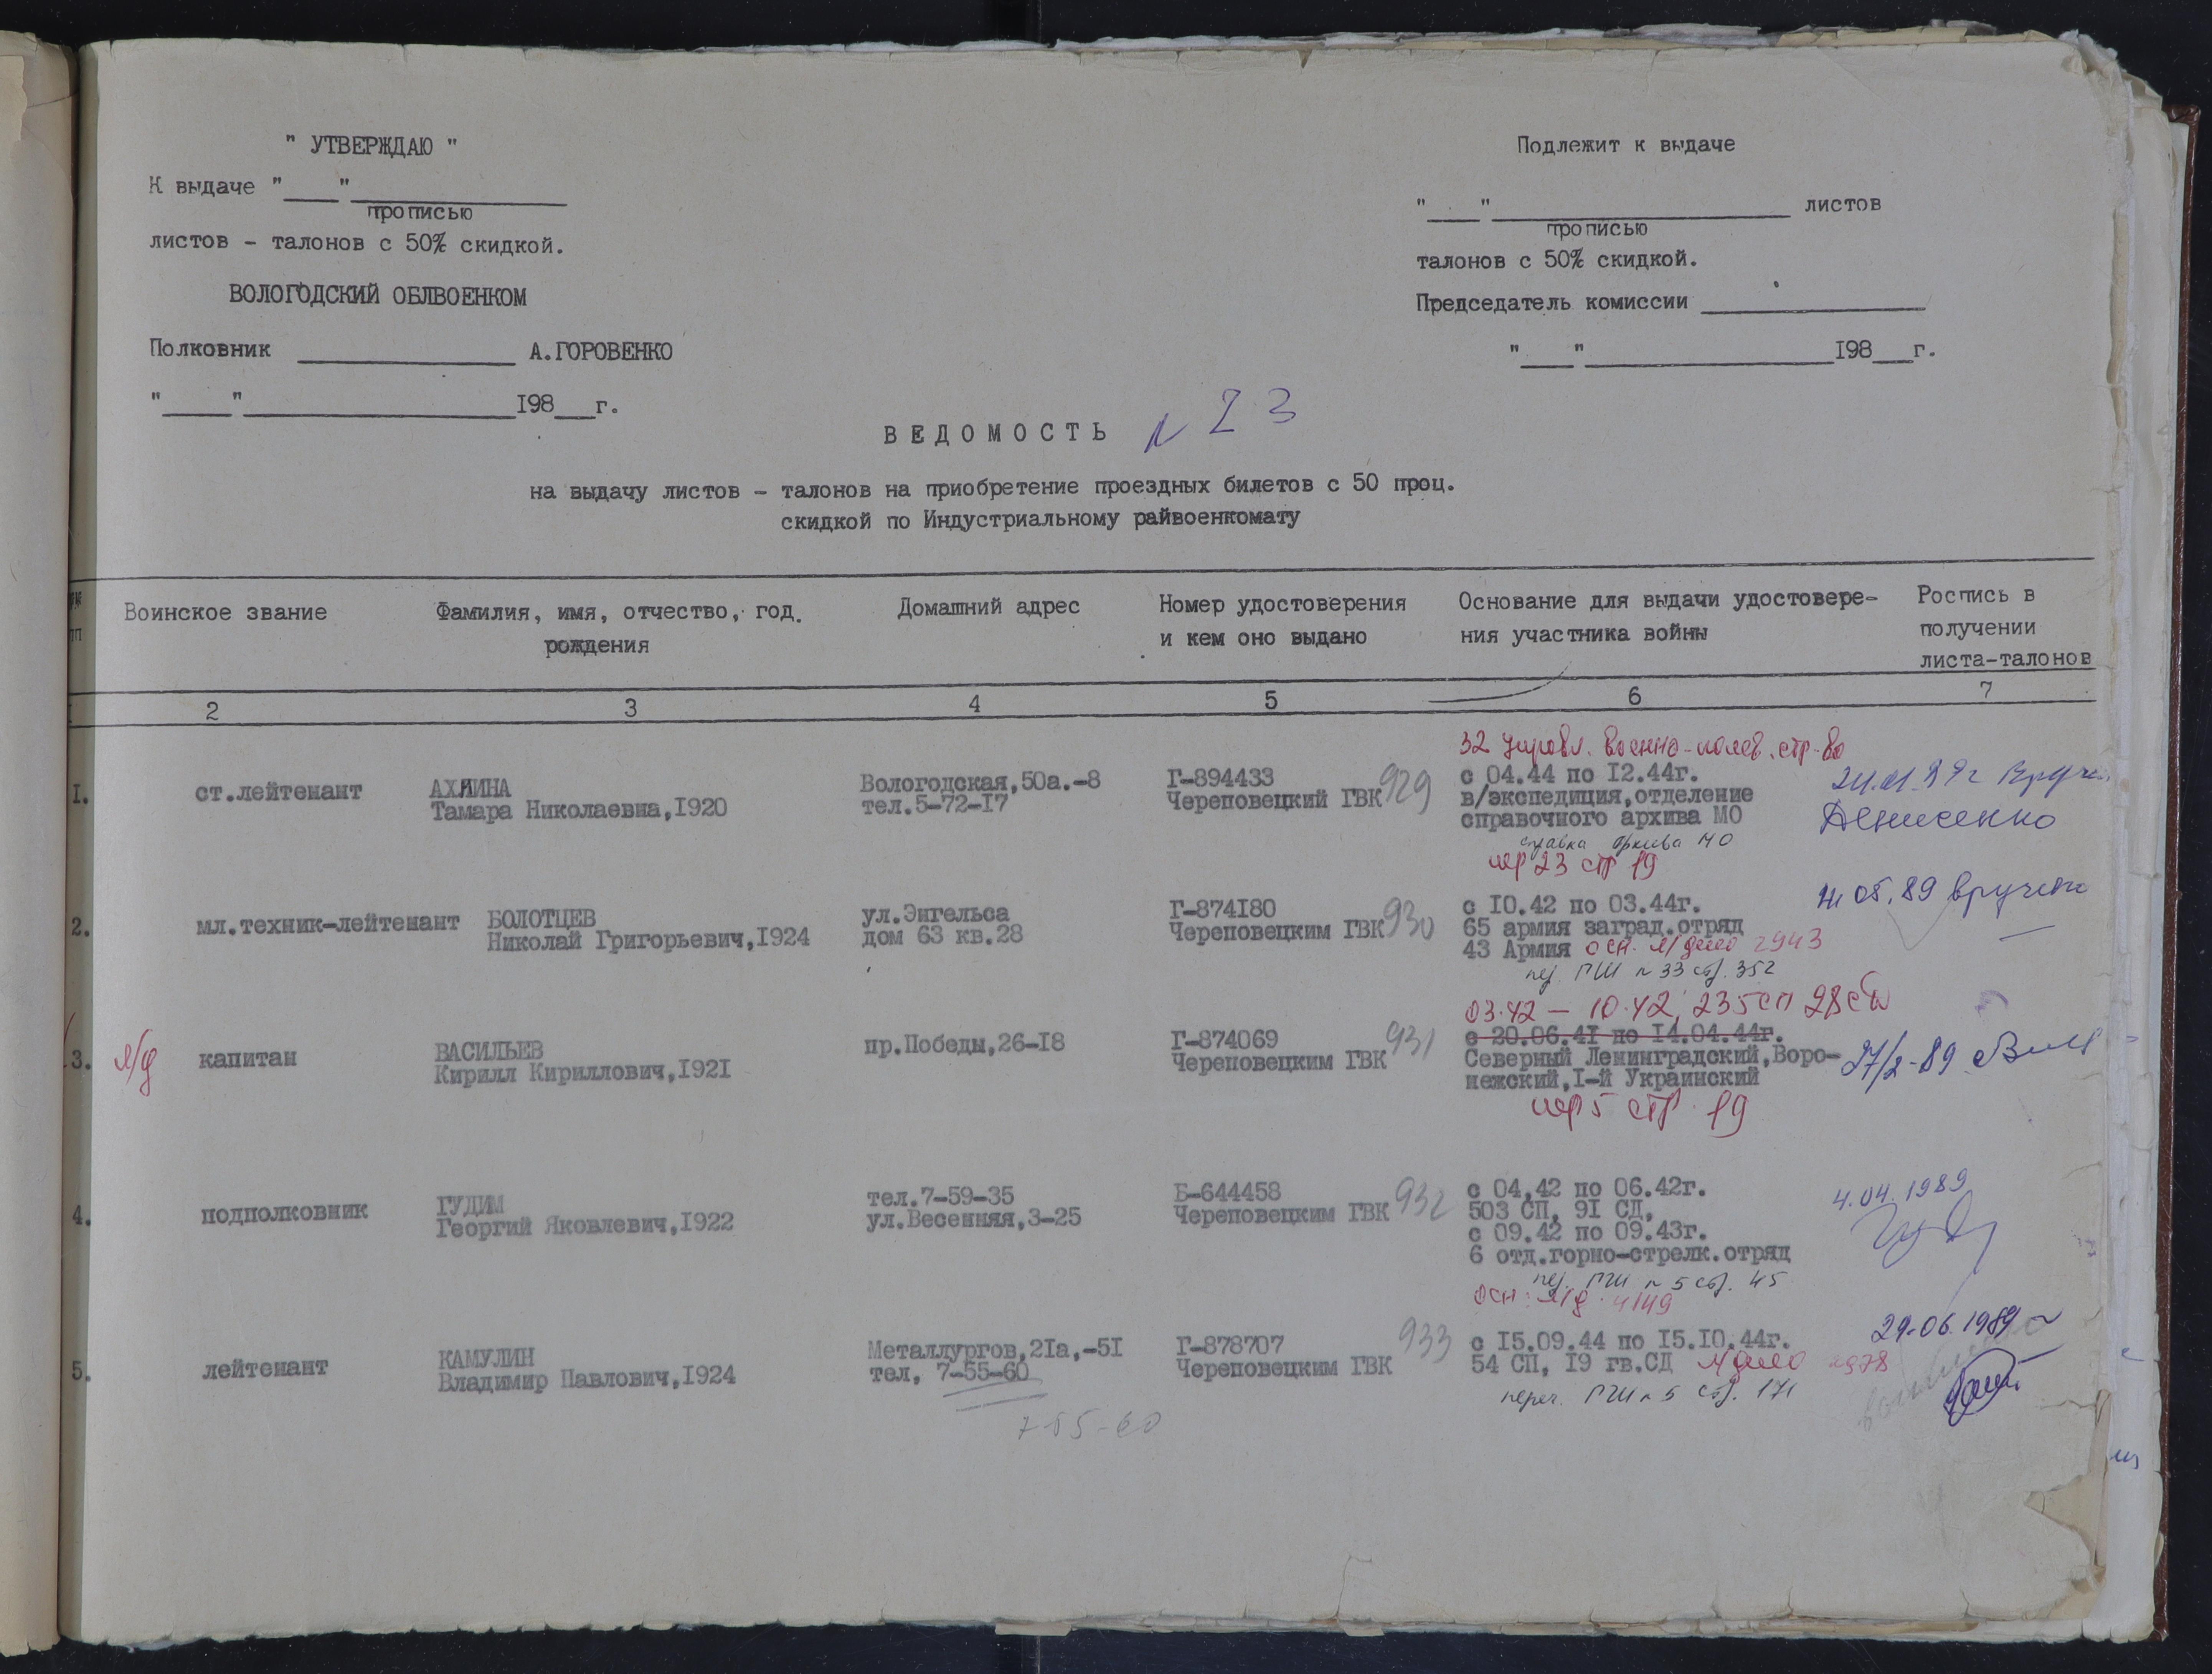 " УТВЕРЖДАЮ "
К выдаче "____" ________________
прописью
листов - талонов с 50% скидкой.
ВОЛОГОДСКИЙ ОБЛВОЕНКОМ
Полковник ________________ А.ГОРОВЕНКО
"_____"____________________I98___г.
Подлежит к выдаче
"____"______________________ листов
прописью
талонов с 50% скидкой.
Председатель комиссии ________________
"____"___________________I98___г.
ВЕДОМОСТЬ N 23
на выдачу листов - талонов на приобретение проездных билетов с 50 проц.
скидкой по Индустриальному райвоенкомату
пп
Воинское звание
Фамилия, имя, отчество, год.
рождения
Домашний адрес
Номер удостоверения
и кем оно выдано
Основание для выдачи удостовере-
ния участника войны
Роспись в
получении
листа-талонов
2 3 4 5 6 7
I.
ст.лейтенант
АХЛИНА
Тамара Николаевна,I920
Вологодская,50а.-8
тел.5-72-I7
Г-894433
Череповецкий ГВК 929
32 управл. военно-полев. стр-во
с 04.44 по I2.44г.
в/экспедиция,отделение
справочного архива МО
справка архива МО
пер 23 стр 19
Денисенко
2.
мл.техник-лейтенант
БОЛОТЦЕВ
Николай Григорьевич,I924
ул.Энгельса
дом 63 кв.28
Г-874I80
Череповецким ГВК 930
с I0.42 по 03.44г.
65 армия заград.отряд
43 Армия осн. л/дело 2943
пер. ПШ N 33 стр. 352
05.89 вручено
3.
л/д
капитан
ВАСИЛЬЕВ
Кирилл Кириллович,I92I
пр.Победы,26-I8
Г-874069
Череповецким ГВК 931
03.42 - 10.42, 235 сп 28 сд
с 20.06.4I по I4.04.44г.
Северный Ленинградский,Воро-
нежский,I-й Украинский
пер 5 стр. 19
27/2-89
4.
подполковник
ГУДИМ
Георгий Яковлевич,I922
тел.7-59-35
ул.Весенняя,3-25
Б-644458
Череповецким ГВК 932
с 04,42 по 06.42г.
503 СП, 9I СД,
с 09.42 по 09.43г.
6 отд.горно-стрелк.отряд
пер. ПШ N 5 стр. 45
осн: л/д 4149
4.04.1989
5.
лейтенант
КАМУЛИН
Владимир Павлович,I924
Металлургов,2Iа,-5I
тел, 7-55-60
7-55-60
Г-878707
Череповецким ГВК
933
с I5.09.44 по I5.I0.44г.
54 СП, I9 гв.СД л/дело 2978
переч. ПШ N 5 стр. 171
29.06.1989